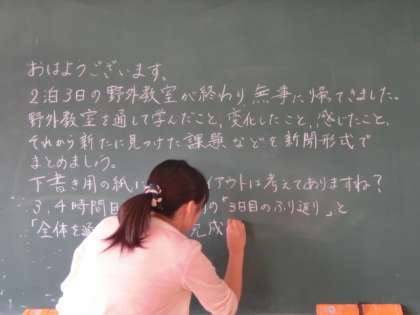 おはようございます。
2泊3日の野外教室が終わり、無事に帰ってきました。
野外教室を通して学んだこと、変化したこと、感じたこと、
それから新たに見つけた課題などを新聞形式で
まとめましょう。
下書き用の紙に イアウトは考えてありますね?
3,4時間目 の「3日目のふり返り」と
「全体を 完成